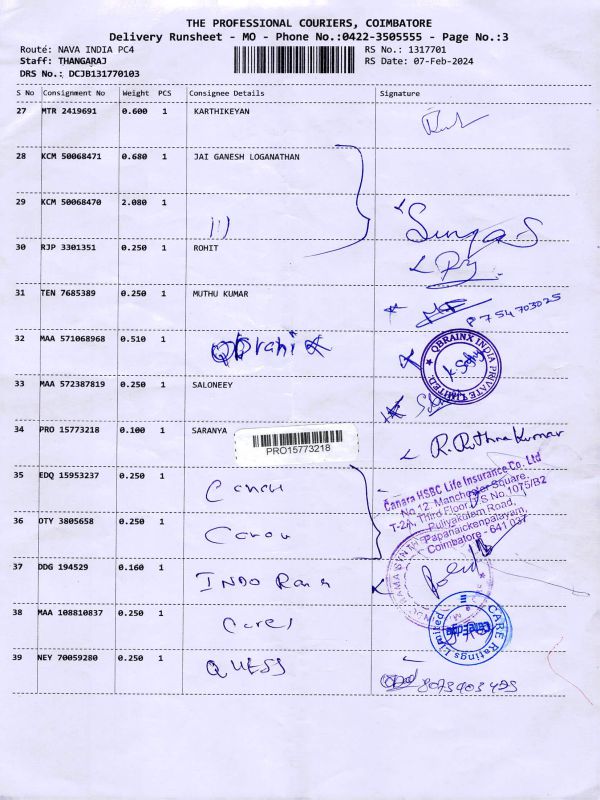 THE PROFESSIONAL COURIERS, COIMBATORE
Delivery Runsheet - MO - Phone No.:0422-3505555 - Page No.:3
Route: NAVA INDIA PC4 RS No.: 1317701
Staff: THANGARAJ RS Date: 07-Feb-2024
DRS No.: DCJB131770103
S No Consignment No Weight PCS Consignee Details Signature
27 MTR 2419691 0.600 1 KARTHIKEYAN
28 KCM 50068471 0.680 1 JAI GANESH LOGANATHAN
29 KCM 50068470 2.080 1
30 RJP 3301351 0.250 1 ROHIT
31 TEN 7685389 0.250 1 MUTHU KUMAR
8754703025
32 MAA 571068968 0.510 1
QBRAINX INDIA PRIVATE LIMITED
33 MAA 572387819 0.250 1 SALONEEY
34 PRO 15773218 0.100 1 SARANYA R. Ruthna Kumar
PRO15773218
35 EDQ 15953237 0.250 1
Canara HSBC Life Insurance Co. Ltd
No 12, Manchester Square,
T-2A, Third Floor, T S No 1075/B2
Puliyakulam Road,
Papanaickenpalayam,
Coimbatore - 641 037
36 OTY 3805658 0.250 1
37 DDG 194529 0.160 1 INDO
38 MAA 108810837 0.250 1
CARE Ratings Limited
39 NEY 70059280 0.250 1 QUESS